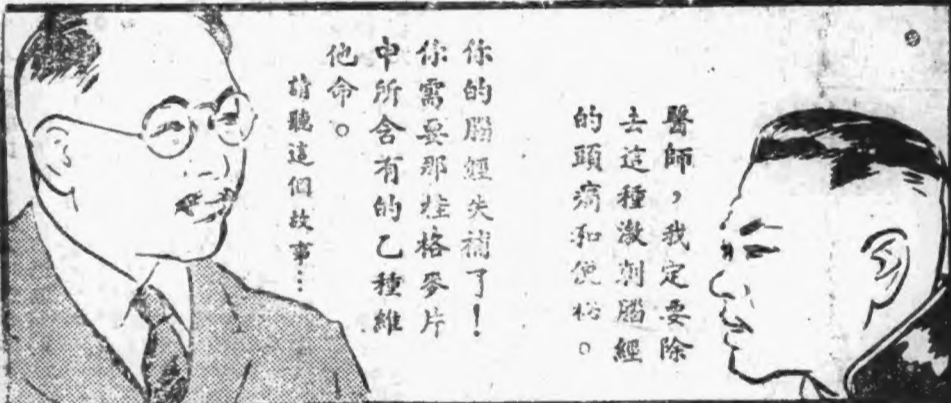 醫師，我定要除
去這種激刺腦經
的頭痛和便祕。
你的腦經失補了！
你需要那桂格麥片
中所含有的乙種維
他命。
請聽這個故事…